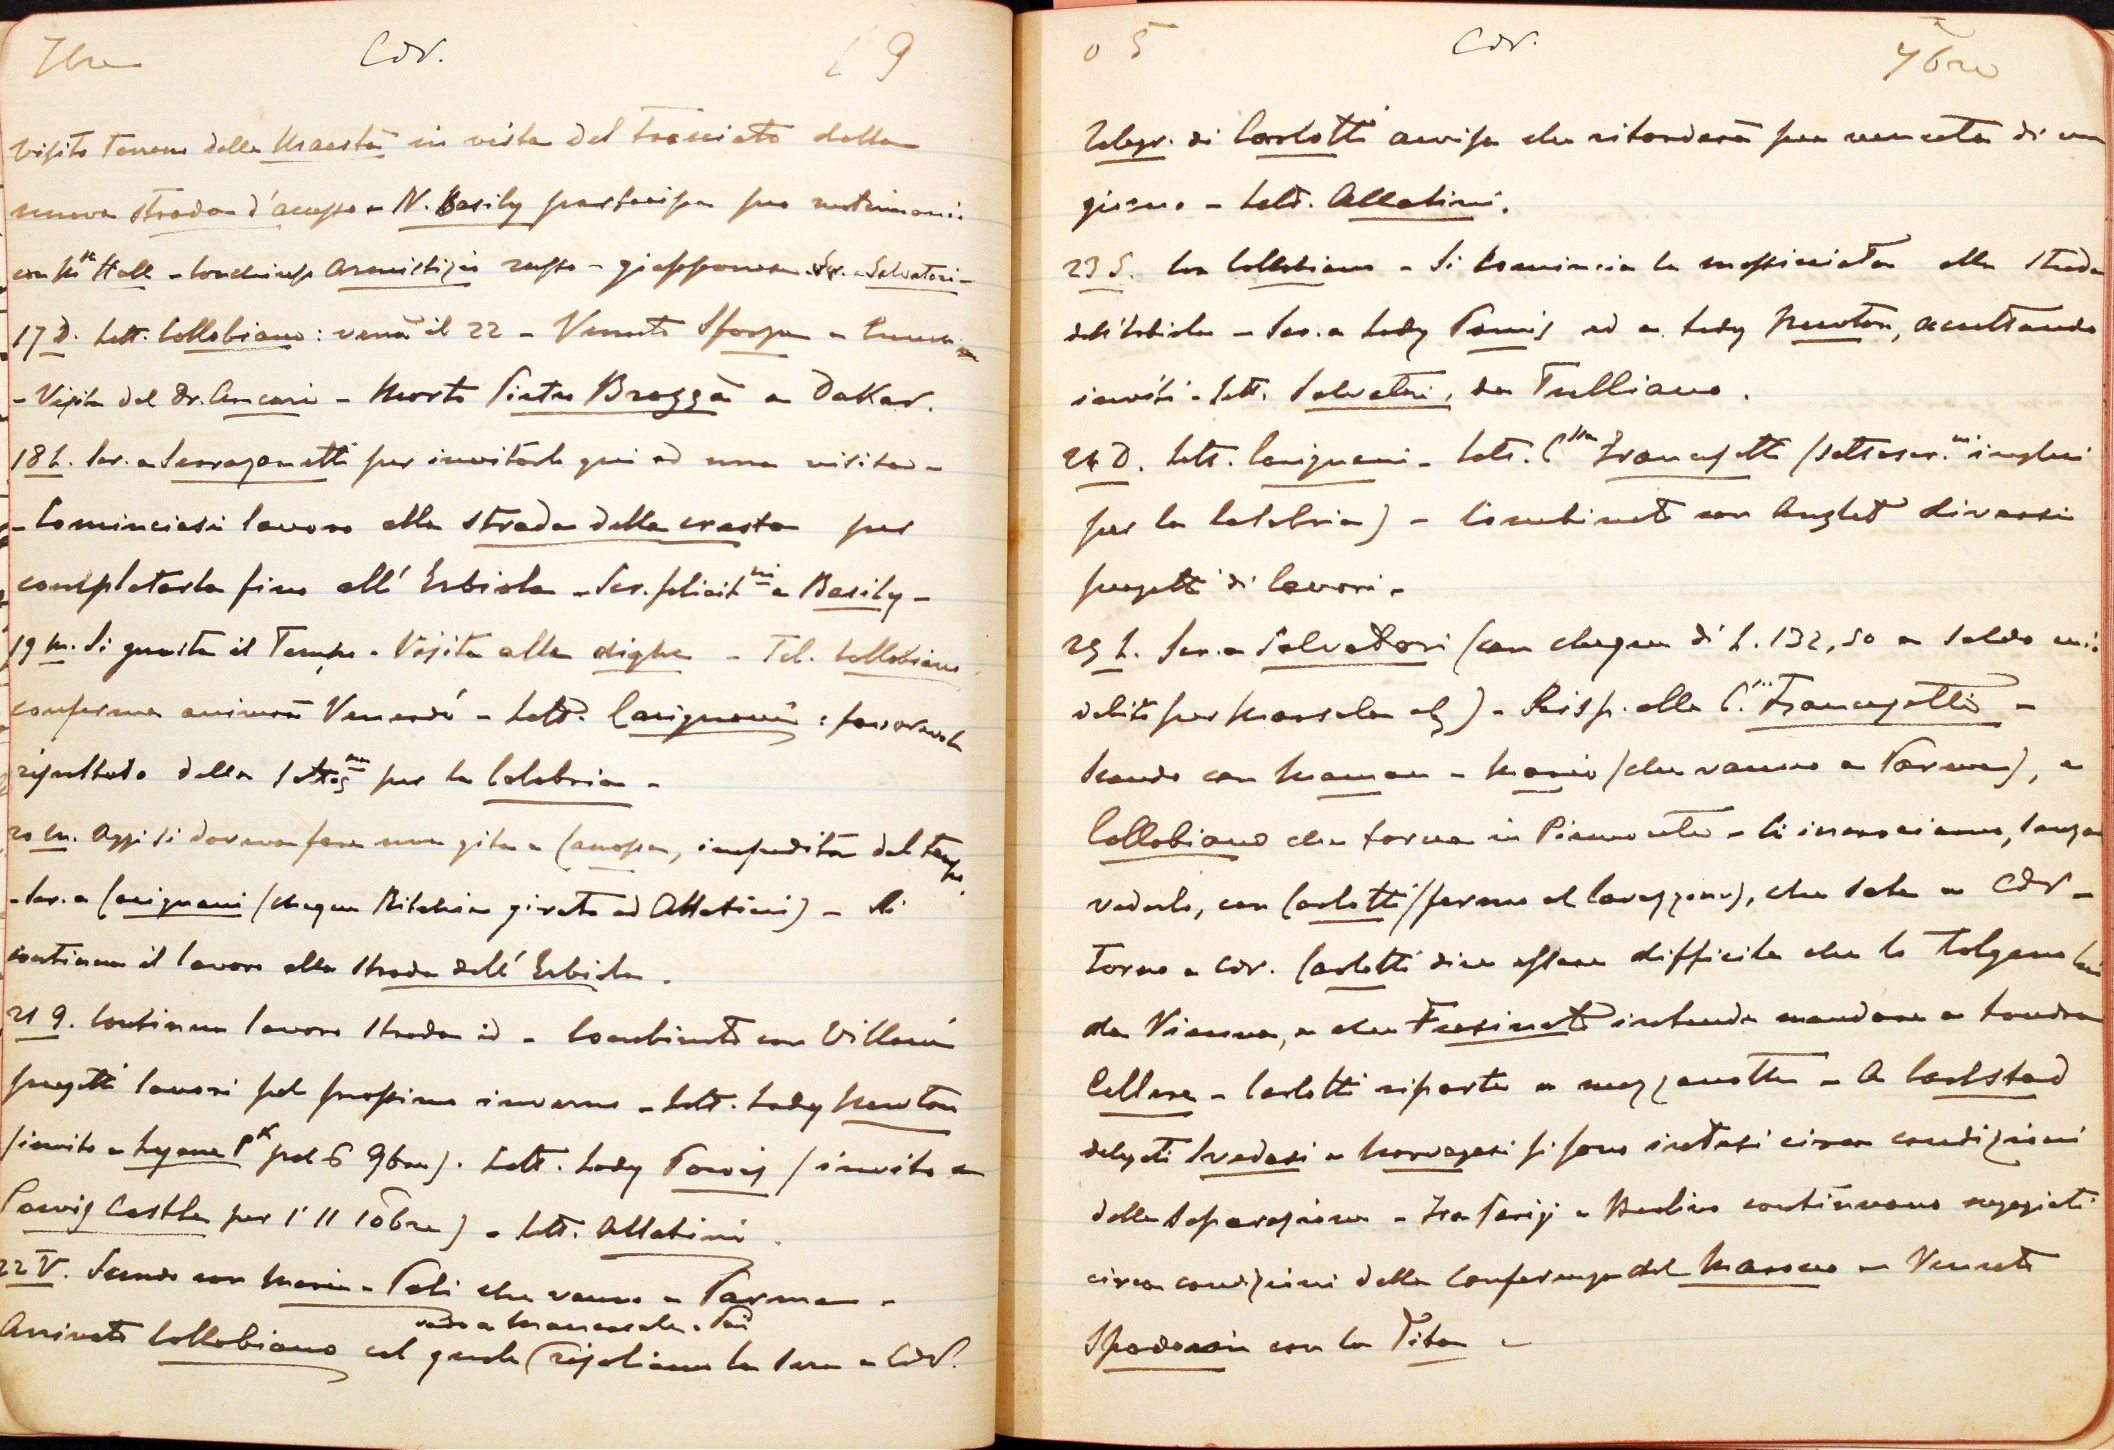 7bre CdV. 19
Visito terreno della Maestà in vista del tracciato della
nuova strada d'accesso - N. Basily partecipa suo matrimonio
con Ms Hall - Conchiuso armistizio russo-giapponese. Scr. a Salvatori -
17 D. Lett. Collobiano: verrà il 22 - Venuto Sforza a
- Visita del Dr. Ancari - Morto Pietro Brazzà a Dakar.
18 L. Scr. a Scarazanetti per invitarlo qui ad una visita -
- Cominciasi lavoro alla strada della cresta per
completarla fino all'Erbiola - Scr. felicit.ni a Basily -
19 M. Si guasta il tempo. Visita alle dighe - Tel. Collobiano
conferma arriverà Venerdì - Lett. Carignani: favorevole
risultato della per la Calabria -
20 M. Oggi si doveva fare una gita a Canossa, impedita dal tempo.
- Scr. a Carignani (cheque girato ad Allatini) - Si
continua il lavoro alla strada dell'Erbiola.
21 G. Continua lavoro strada id - Combinato con Villani
progetti lavori pel prossimo inverno - Lett. Lady Newton
(invito a Lyme Pk pel 6 9bre). Lett. Lady Powis (invito a
Powis Castle per l'11 10bre) - Lett. Allatini.
22 V. Scendo con Maria - Poli che vanno a Parma -
vado a Mancasale. Poi
Arrivato Collobiano col quale (risaliamo la sera a CdV.
05 CdV. 7bre
Telegr. di Carlotti avvisa che ritarderà sua venuta di un
giorno - Lett. Allatini.
23 S. Con Collobiano - Si comincia la massicciata alla strada
dell'Erbiola - Scr. a Lady Powis ed a Lady Newton, accettando
inviti - Lett. Salvatori, da Tulliano.
24 D. Lett. Carignani - Lett. C.ssa Francesetti (sottoscr.ni inglesi
per la Calabria) - Combinato con Anglet diversi
progetti di lavori -
25 L. Scr. a Salvatori (con cheque di L. 132,50 a saldo mio
debito per Marsala etc) - Risp. alla C.ssa Francesetti -
Scendo con Maman - Maria (che vanno a Parma), e
Collobiano che torna in Piemonte - Ci incrociamo, senza
vederlo, con Carlotti (fermo al Cavazzone), che sale a CdV -
Torno a CdV. Carlotti dice essere difficile che lo tolgano lui
da Vienna, e che Fusinato intende mandare a Londra
Cellere - Carlotti riparte a mezzanotte - A Carlstad
delegati svedesi e norvegesi si sono intesi circa condizioni
della separazione - Fra Parigi e Berlino continuano negoziati
circa condizioni della Conferenza del Marocco - Venuto
Spadoni con la Tita -